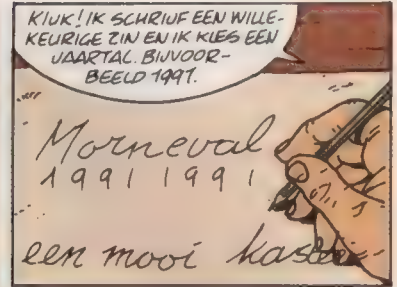 KIJK! IK SCHRIJF EEN WILLE-
KEURIGE ZIN EN IK KIES EEN
JAARTAL. BIJVOOR-
BEELD 1991.
Morneval
1991 1991
een mooi